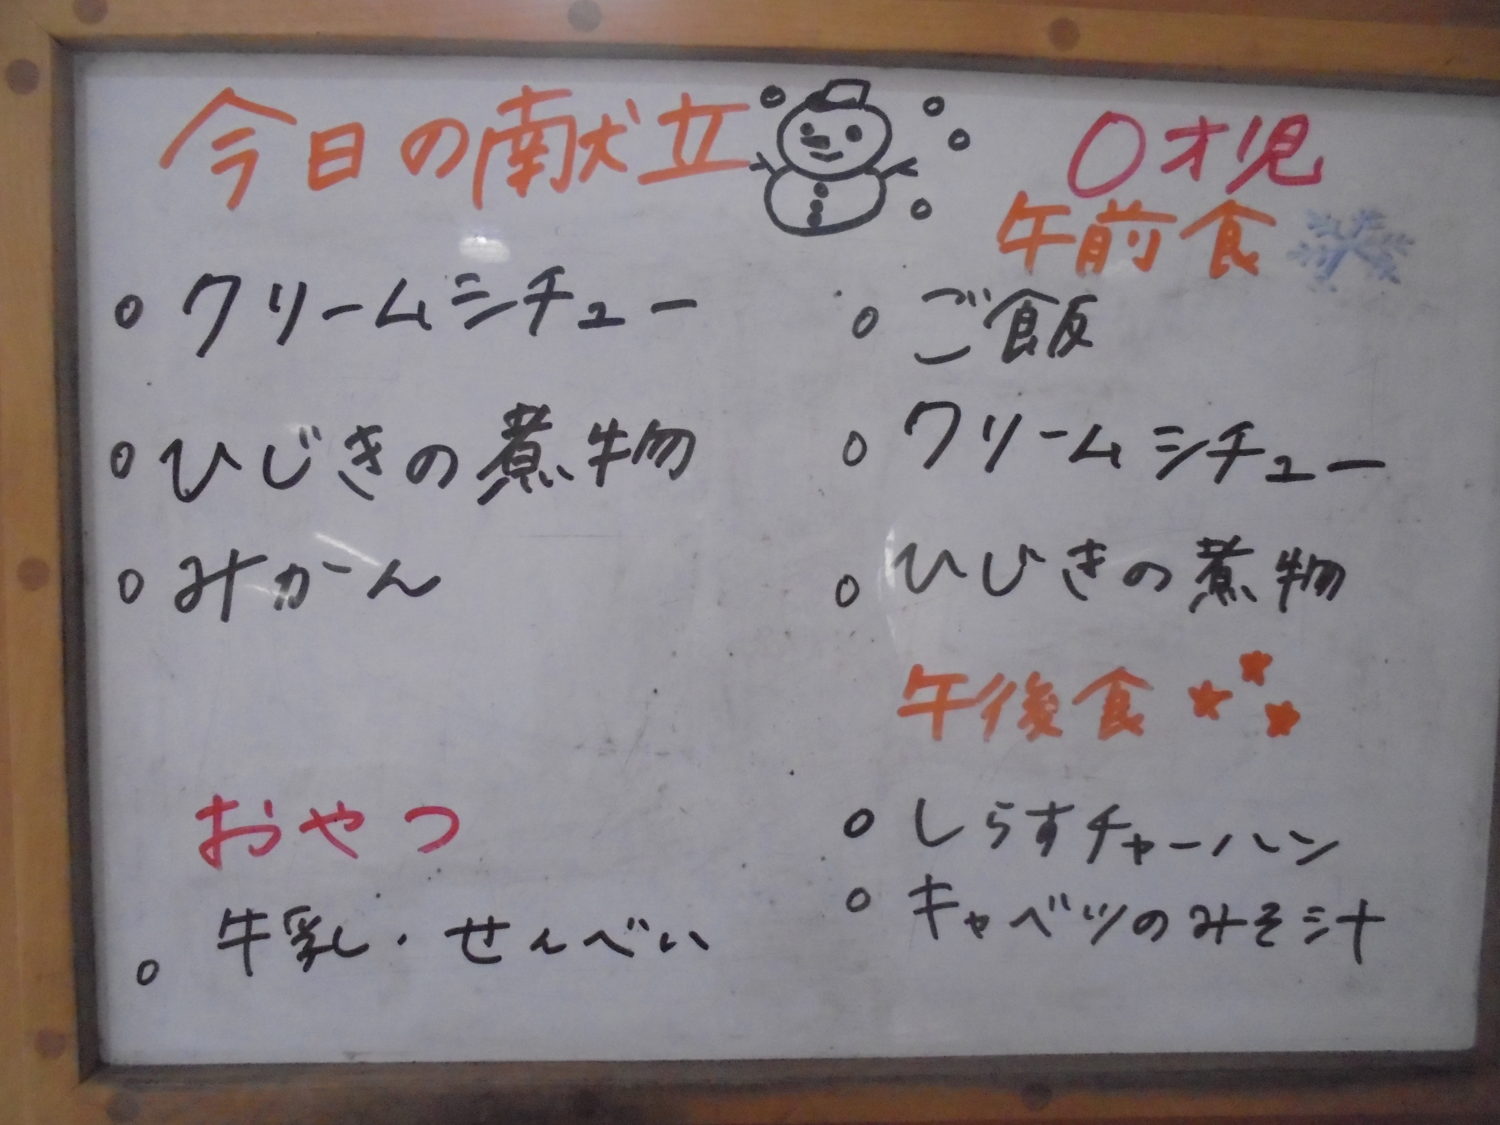 今日の献立
○ クリームシチュー
○ ひじきの煮物
○ みかん
おやつ
○ 牛乳・せんべい
0才児
午前食
○ ご飯
○ クリームシチュー
○ ひじきの煮物
午後食
○ しらすチャーハン
○ キャベツのみそ汁